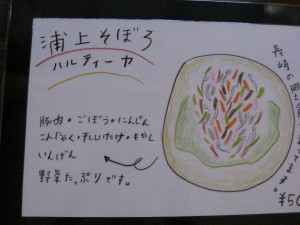 浦上そぼろ
ハルティーヤ
豚肉。ごぼう。にんじん
こんにゃく。ほしいたけ。もやし
いんげん
野菜たっぷりです。
長崎の郷
ます。
¥50